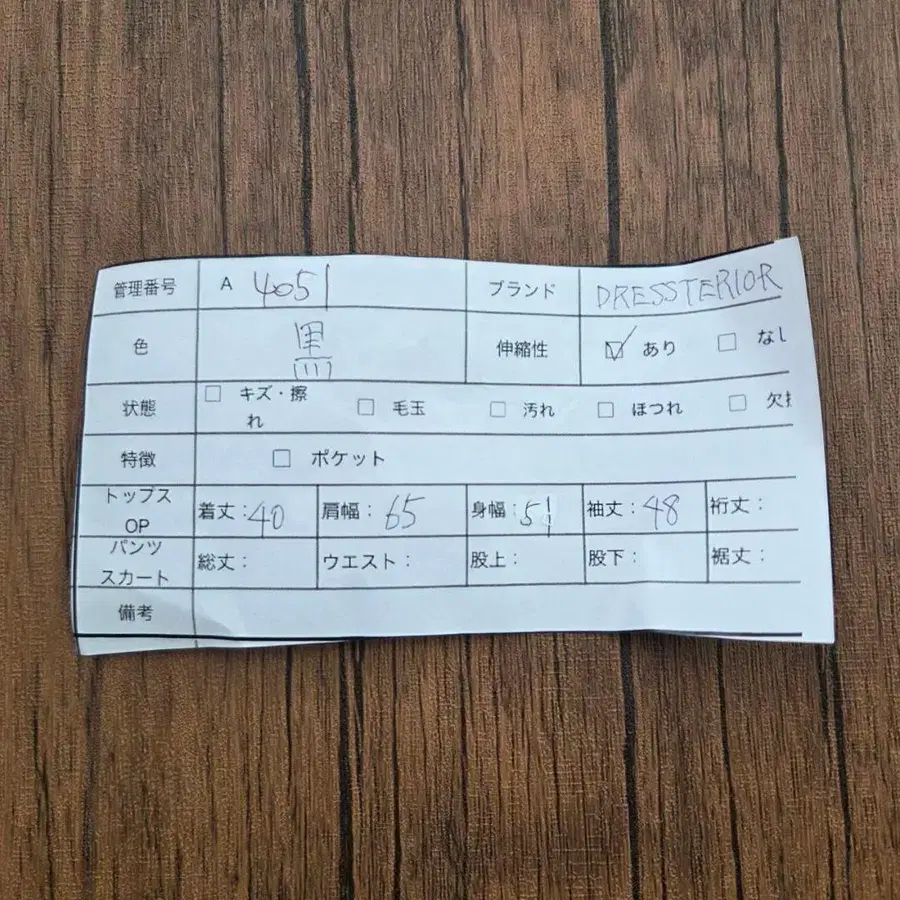 管理番号 A 4051 ブランド DRESSTERIOR
色 黒 伸縮性 ☑ あり ☐ なし
状態 ☐ キズ・擦れ ☐ 毛玉 ☐ 汚れ ☐ ほつれ ☐
特徴 ☐ ポケット
トップス OP 着丈：40 肩幅：65 身幅：51 袖丈：48 裄丈：
パンツ スカート 総丈： ウエスト： 股上： 股下： 裾丈：
備考